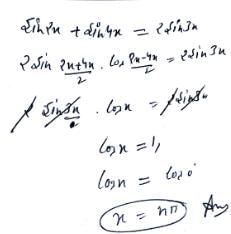 sin2x + sin4x = 2sin3x
2sin (2x+4x)/2 . cos (2x-4x)/2 = 2sin3x
2 sin3x . cosx = 2sin3x
cosx = 1,
cosx = cos0
x = nπ Ans